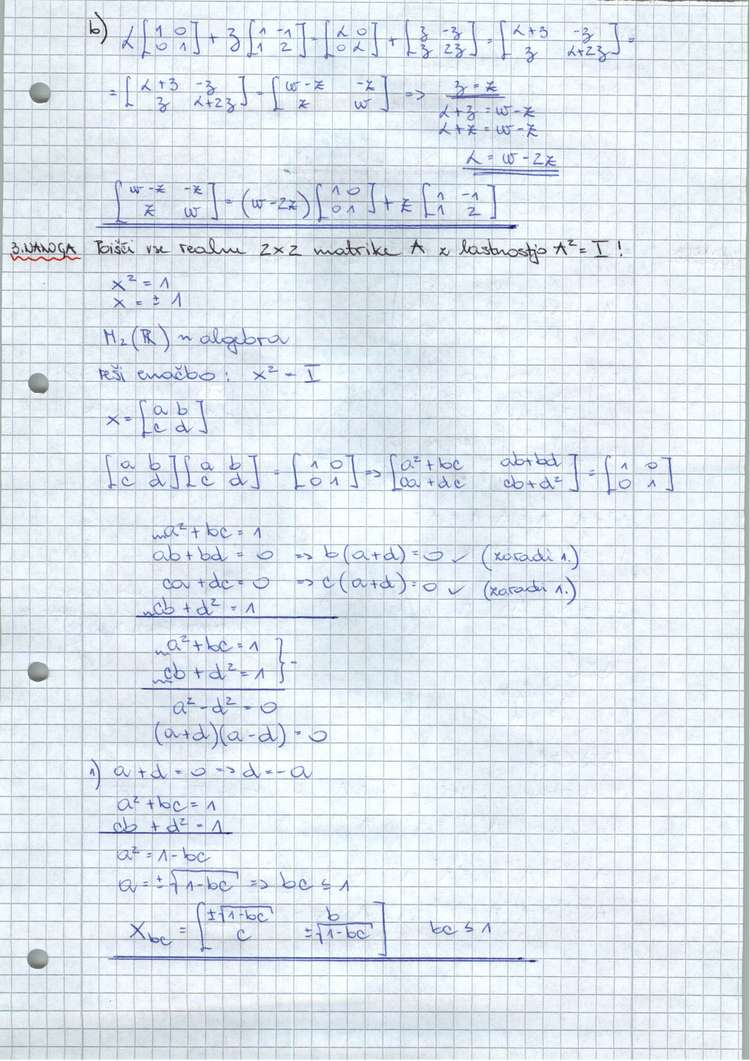 b) α[1 0; 0 1] + β[1 -1; 1 2] = [α 0; 0 α] + [β -β; β 2β] = [α+β -β; β α+2β] =
= [α+β -β; β α+2β] = [w-z -z; z w] => β = z
α+β = w-z
α+z = w-z
α = w-2z
[w-z -z; z w] = (w-2z)[1 0; 0 1] + z[1 -1; 1 2]
3. NALOGA Poišči vse realne 2×2 matrike A z lastnostjo A² = I!
x² = 1
x = ± 1
M₂(ℝ) ~ algebra
reši enačbo: x² = I
x = [a b; c d]
[a b; c d][a b; c d] = [1 0; 0 1] => [a²+bc ab+bd; ca+dc cb+d²] = [1 0; 0 1]
a²+bc = 1
ab+bd = 0 => b(a+d) = 0 ✓ (zaradi 1.)
ca+dc = 0 => c(a+d) = 0 ✓ (zaradi 1.)
cb+d² = 1
a²+bc = 1
cb+d² = 1 } -
a²-d² = 0
(a+d)(a-d) = 0
1) a+d = 0 => d = -a
a²+bc = 1
cb+d² = 1
a² = 1-bc
a = ±√(1-bc) => bc ≤ 1
X_bc = [±√(1-bc) b; c ±√(1-bc)] bc ≤ 1